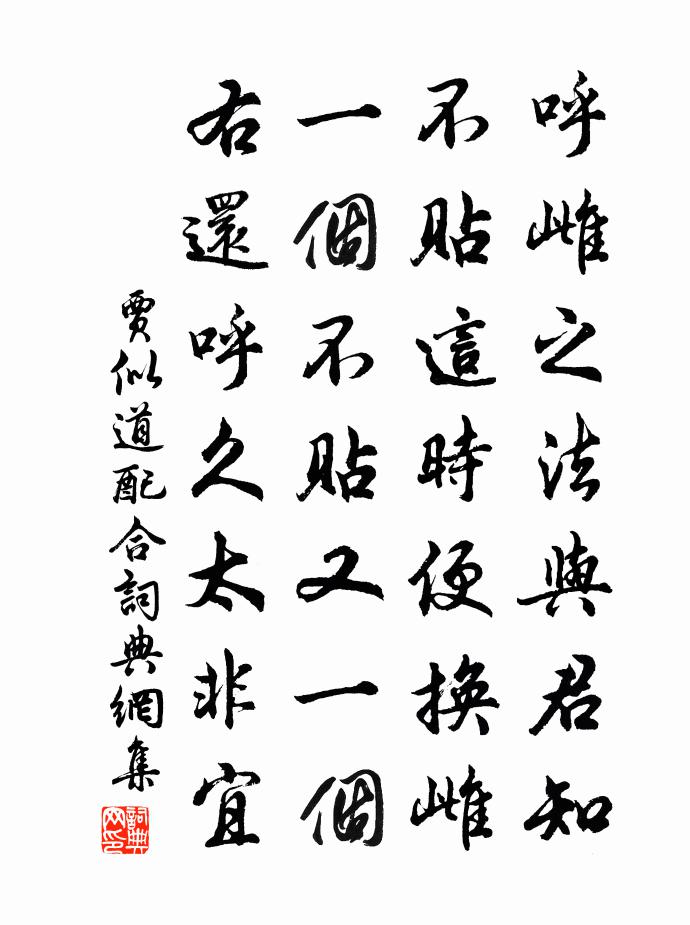 呼雌之法與君知
不貼這時便換雌
一個不貼又一個
右還呼久太非宜
賈似道配合詞典網集
詞典網印